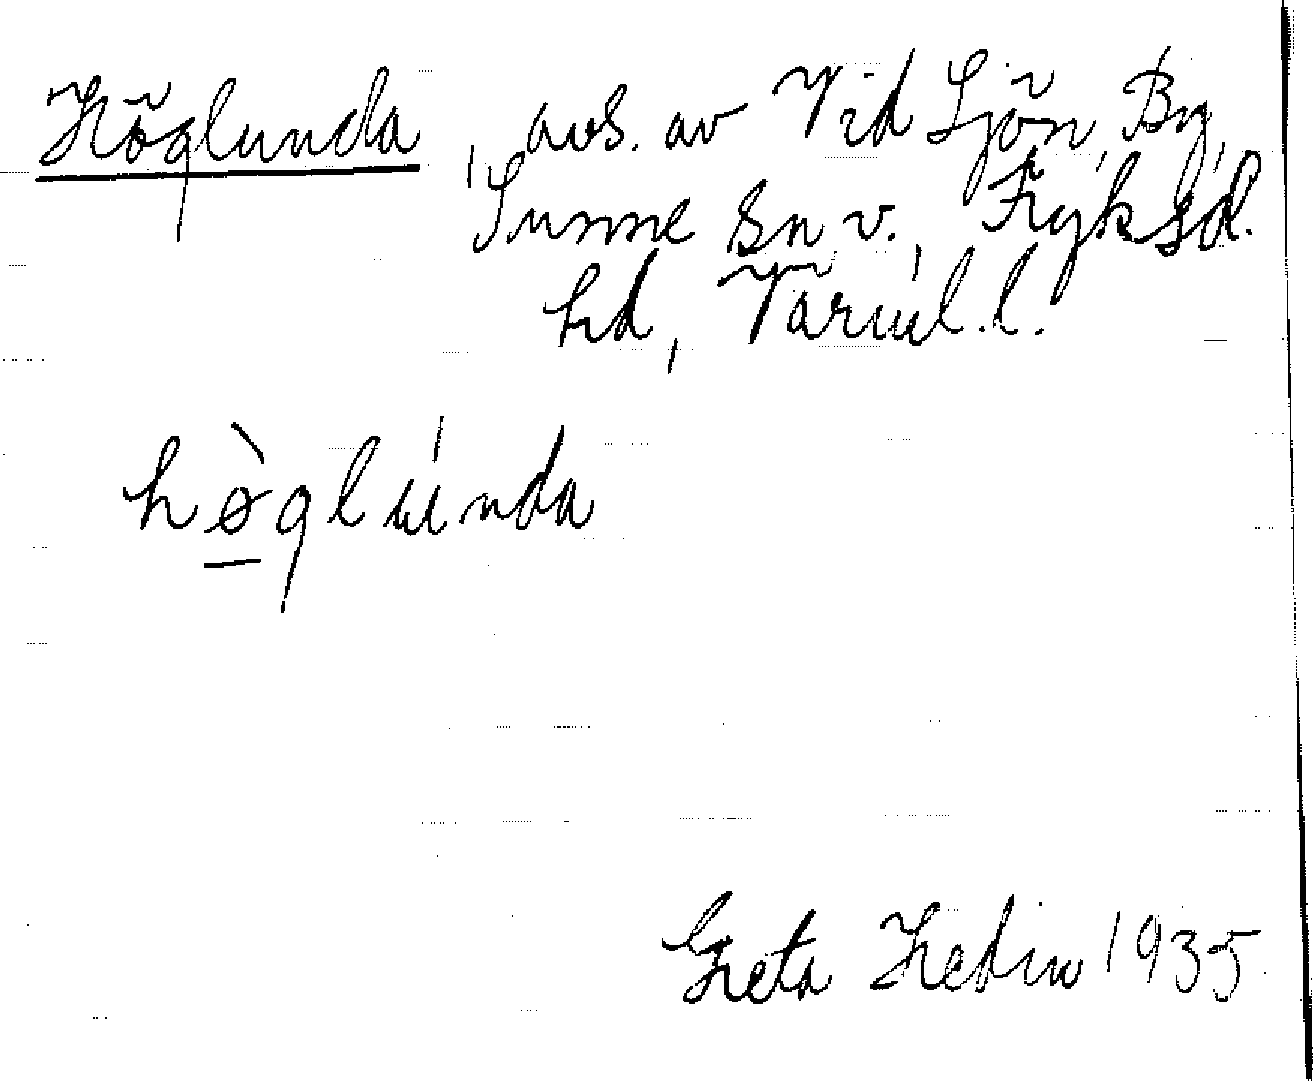 Höglunda, avs. av Vid Sjön, By,
Sunne sn v., Fryksd.
hd, Värml. l.
hø̀glúnda
Greta Hedin 1935